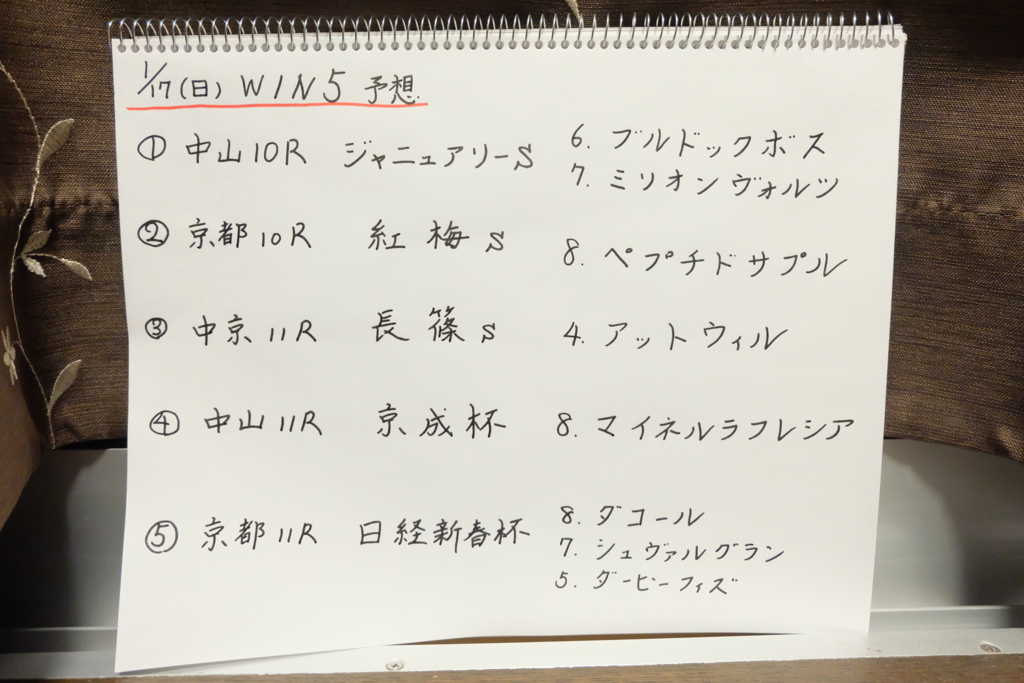 1/17(日) WIN5 予想
① 中山10R ジャニュアリーS 6. ブルドックボス
7. ミリオンヴォルツ
② 京都10R 紅梅S 8. ペプチドサプル
③ 中京11R 長篠S 4. アットウィル
④ 中山11R 京成杯 8. マイネルラフレシア
⑤ 京都11R 日経新春杯 8. ダコール
7. シュヴァルグラン
5. ダービーフィズ